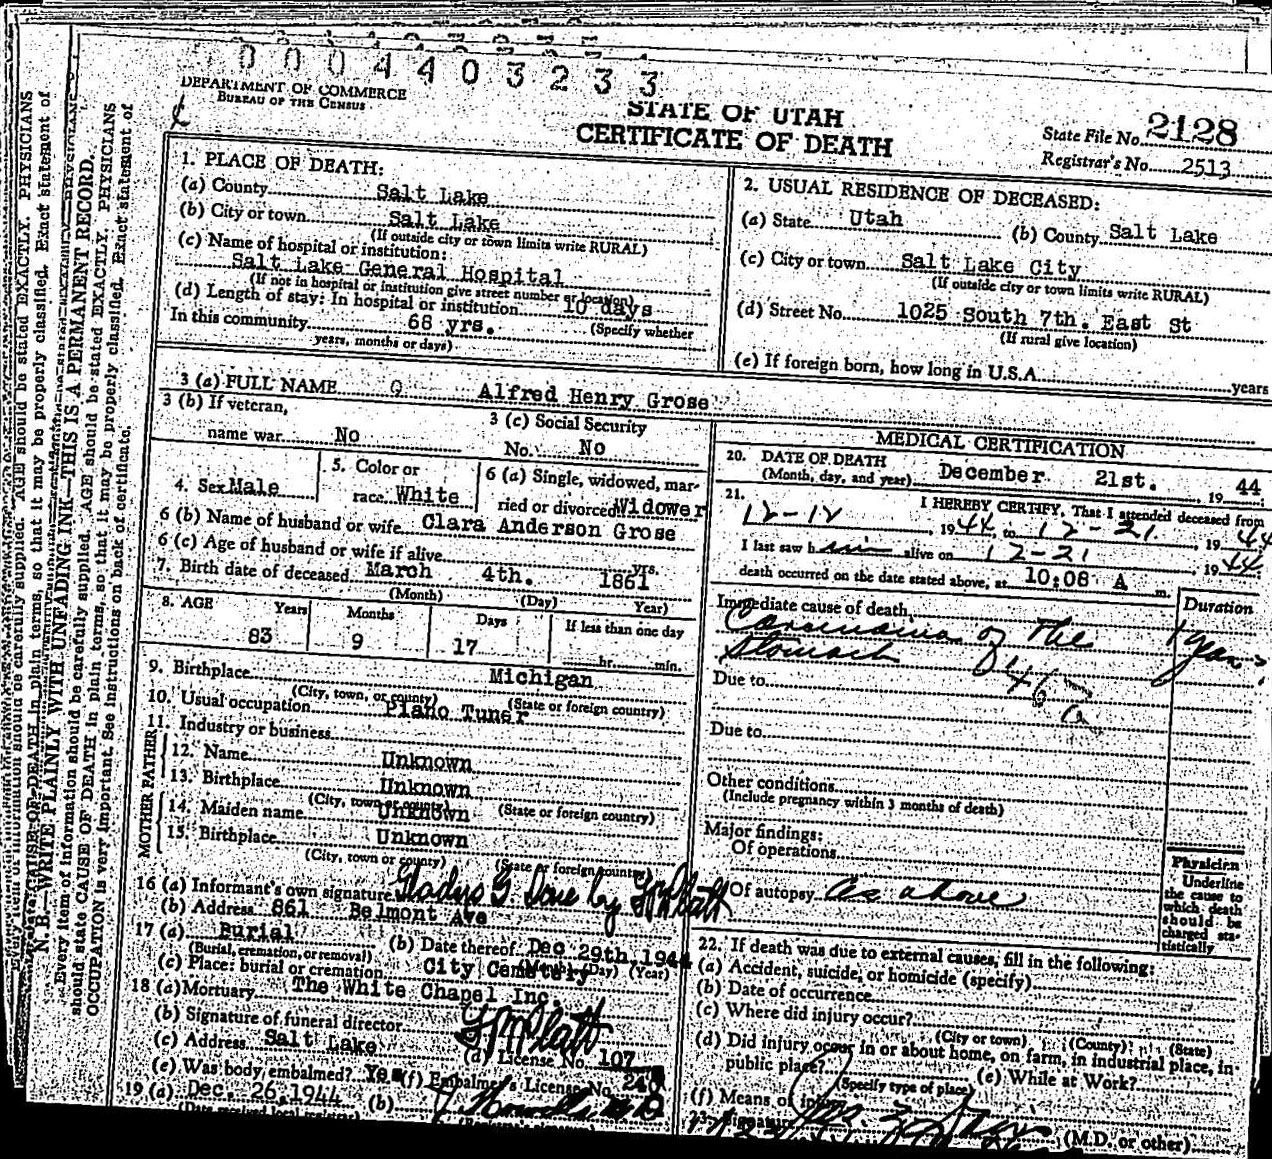 0 0 0 4 4 0 3 2 3 3
DEPARTMENT OF COMMERCE
BUREAU OF THE CENSUS
STATE OF UTAH
CERTIFICATE OF DEATH
State File No. 2128
Registrar's No. 2513
1. PLACE OF DEATH:
(a) County Salt Lake
(b) City or town Salt Lake
(If outside city or town limits write RURAL)
(c) Name of hospital or institution:
Salt Lake General Hospital
(If not in hospital or institution give street number or location)
(d) Length of stay: In hospital or institution 10 days
In this community 68 yrs. (Specify whether
years, months or days)
2. USUAL RESIDENCE OF DECEASED:
(a) State Utah (b) County Salt Lake
(c) City or town Salt Lake City
(If outside city or town limits write RURAL)
(d) Street No. 1025 South 7th. East St
(If rural give location)
(e) If foreign born, how long in U.S.A. years
3 (a) FULL NAME Alfred Henry Grose
3 (b) If veteran,
name war No
3 (c) Social Security
No. No
4. Sex Male
5. Color or
race White
6 (a) Single, widowed, mar-
ried or divorced Widower
6 (b) Name of husband or wife Clara Anderson Grose
6 (c) Age of husband or wife if alive yrs.
7. Birth date of deceased March 4th. 1861
(Month) (Day) Year)
8. AGE Years Months Days If less than one day
83 9 17 hr. min.
9. Birthplace Michigan
(City, town, or county) (State or foreign country)
10. Usual occupation Piano Tuner
11. Industry or business
FATHER
12. Name Unknown
13. Birthplace Unknown
(City, town or county) (State or foreign country)
MOTHER
14. Maiden name Unknown
15. Birthplace Unknown
(City, town or county) (State or foreign country)
16 (a) Informant's own signature Gladys G. Done by
(b) Address 861 Belmont Ave
17 (a) Burial (b) Date thereof Dec 29th. 1944
(Burial, cremation, or removal) (Month) (Day) (Year)
(c) Place: burial or cremation City Cemetery
18 (a) Mortuary The White Chapel Inc.
(b) Signature of funeral director
(c) Address Salt Lake (d) License No. 107
(e) Was body embalmed? Yes (f) Embalmer's License No. 240
19 (a) Dec. 26, 1944 (b)
MEDICAL CERTIFICATION
20. DATE OF DEATH
(Month, day, and year) December 21st. , 19 44
21. I HEREBY CERTIFY, That I attended deceased from
12-12, 19 44, to 12-21, 19 44
I last saw h im alive on 12-21, 19 44
death occurred on the date stated above, at 10:08 A m.
Immediate cause of death Duration
Carcinoma of The 1 year?
Stomach
Due to
Due to
Other conditions
(Include pregnancy within 3 months of death)
Major findings:
Of operations
Of autopsy as above
Physician
Underline
the cause to
which death
should be
charged sta-
tistically
22. If death was due to external causes, fill in the following:
(a) Accident, suicide, or homicide (specify)
(b) Date of occurrence
(c) Where did injury occur?
(City or town) (County) (State)
(d) Did injury occur in or about home, on farm, in industrial place, in
public place? (e) While at Work?
(Specify type of place)
(f) Means of injury
(M.D. or other)
N.B.—WRITE PLAINLY WITH UNFADING INK—THIS IS A PERMANENT RECORD.
Every item of information should be carefully supplied. AGE should be stated EXACTLY. PHYSICIANS
should state CAUSE OF DEATH in plain terms, so that it may be properly classified. Exact statement of
OCCUPATION is very important. See instructions on back of certificate.